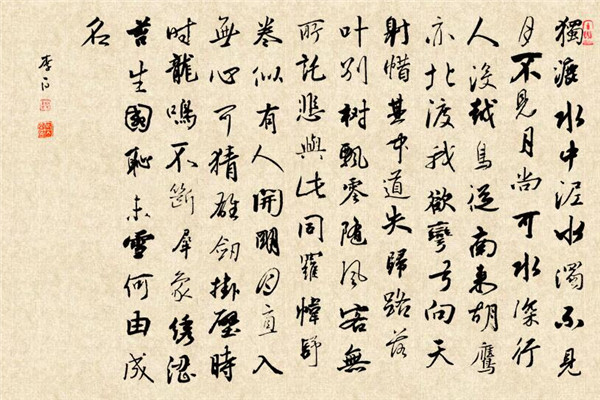 獨漉水中泥水濁不見
月不見月尚可水深行
人沒越鳥從南來胡鷹
亦北渡我欲彎弓向天
射惜其中道失歸路落
叶別树飄零隨風客無
所託悲與此同羅幃舒
卷似有人開明月直入
無心可猜雄劍掛壁時
时龍鳴不斷犀象綉澀
苔生國恥未雪何由成
名
李白